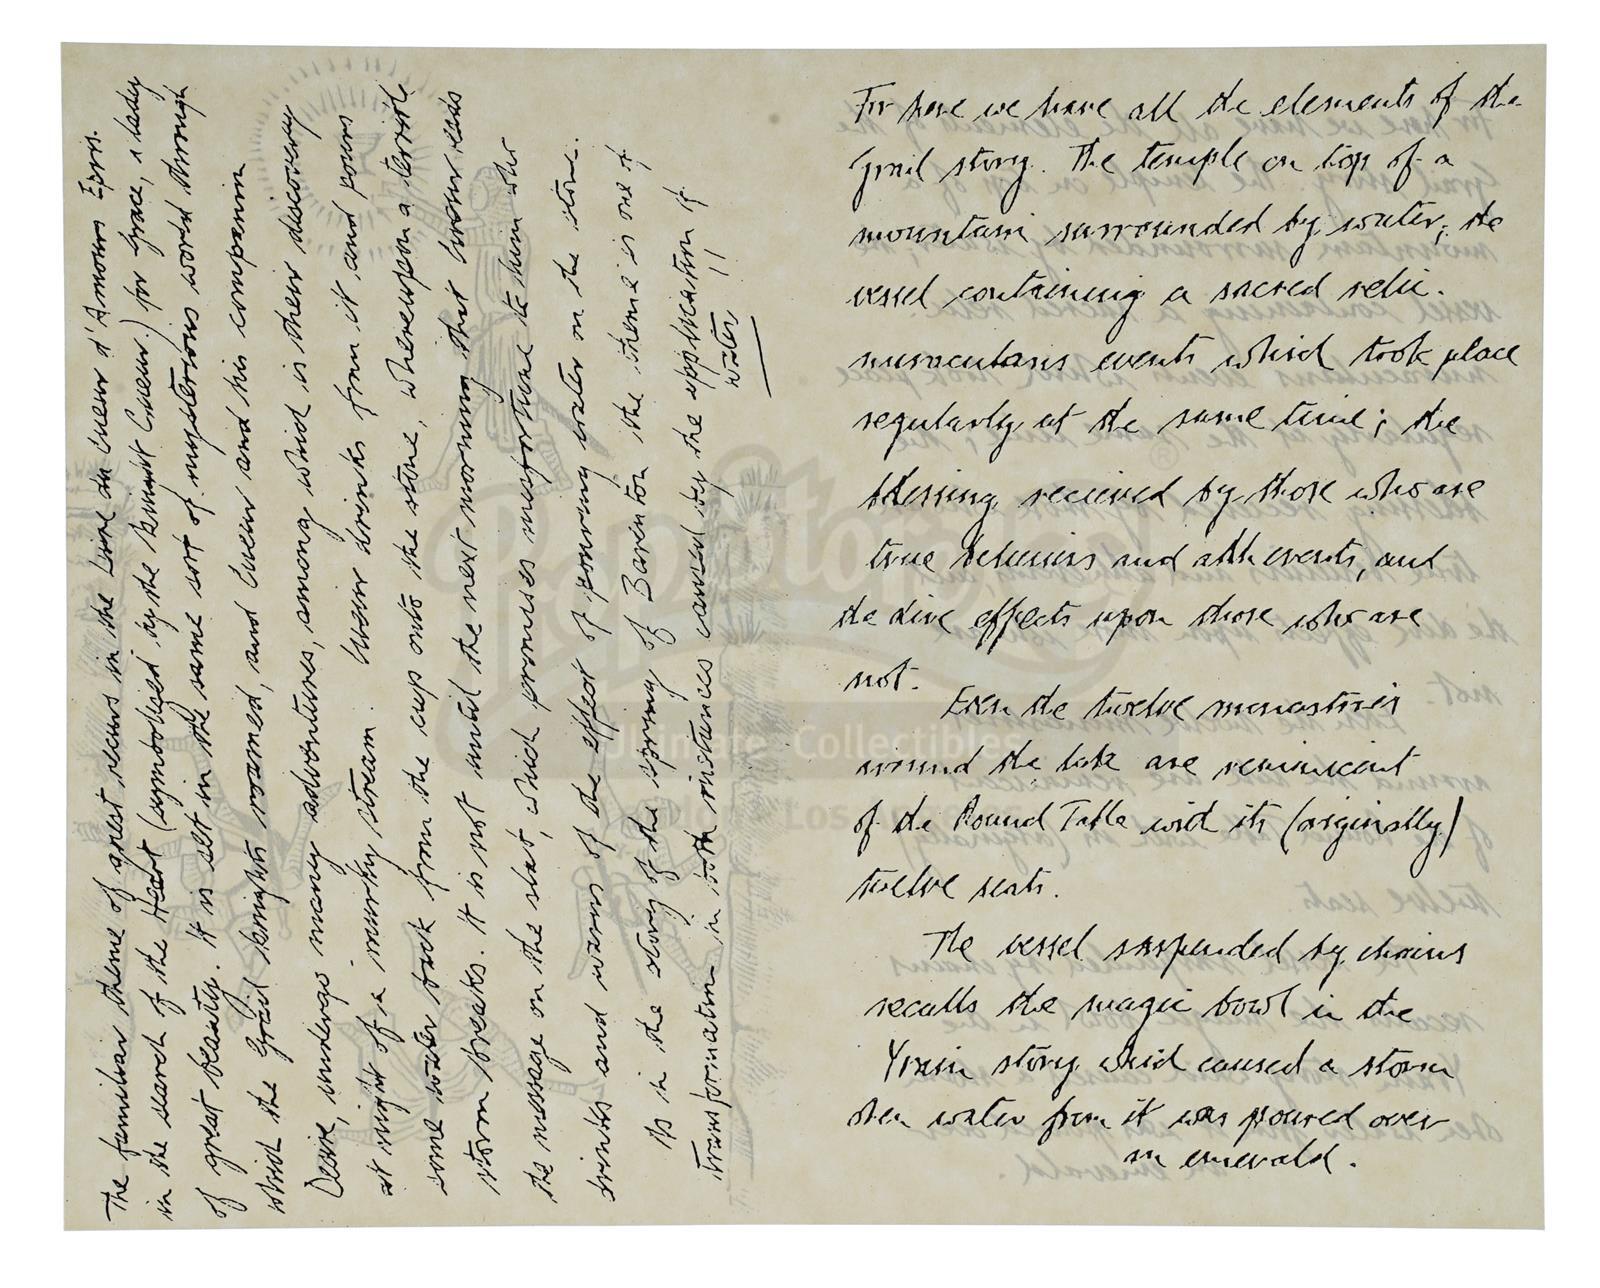 The familiar theme of quest recurs in the Livre du Cueur d'Amours Epris.
in the search of the Heart (symbolised by the knight Cueur) for Grace, a lady
of great beauty. It is set in the same sort of mysterious world through
which the Grail knights roamed, and Cueur and his companion
Desire, undergo many adventures, among which is their discovery
at night of a murky stream. Cueur drinks from it and pours
some water back from the cup onto the stone, whereupon a terrible
storm breaks. It is not until the next morning that Cueur reads
the message on the slab, which promises misfortune to him who
drinks and warns of the effect of pouring water on the stone.
As in the story of the spring of Barenton the theme is one of
transformation in both instances caused by the application of
water!!
For here we have all the elements of the
Grail story. The temple on top of a
mountain surrounded by water; the
vessel containing a sacred relic.
miraculous events which took place
regularly at the same time; the
blessing recieved by those who are
true believers and adherents, and
the dire effects upon those who are
not.
Even the twelve monasteries
around the lake are reminiscent
of the Round Table with its (originally)
twelve seats.
The vessel suspended by chains
recalls the magic bowl in the
Yvain story which caused a storm
when water from it was poured over
an emerald.
Propstore
®
Ultimate Collectibles
Los